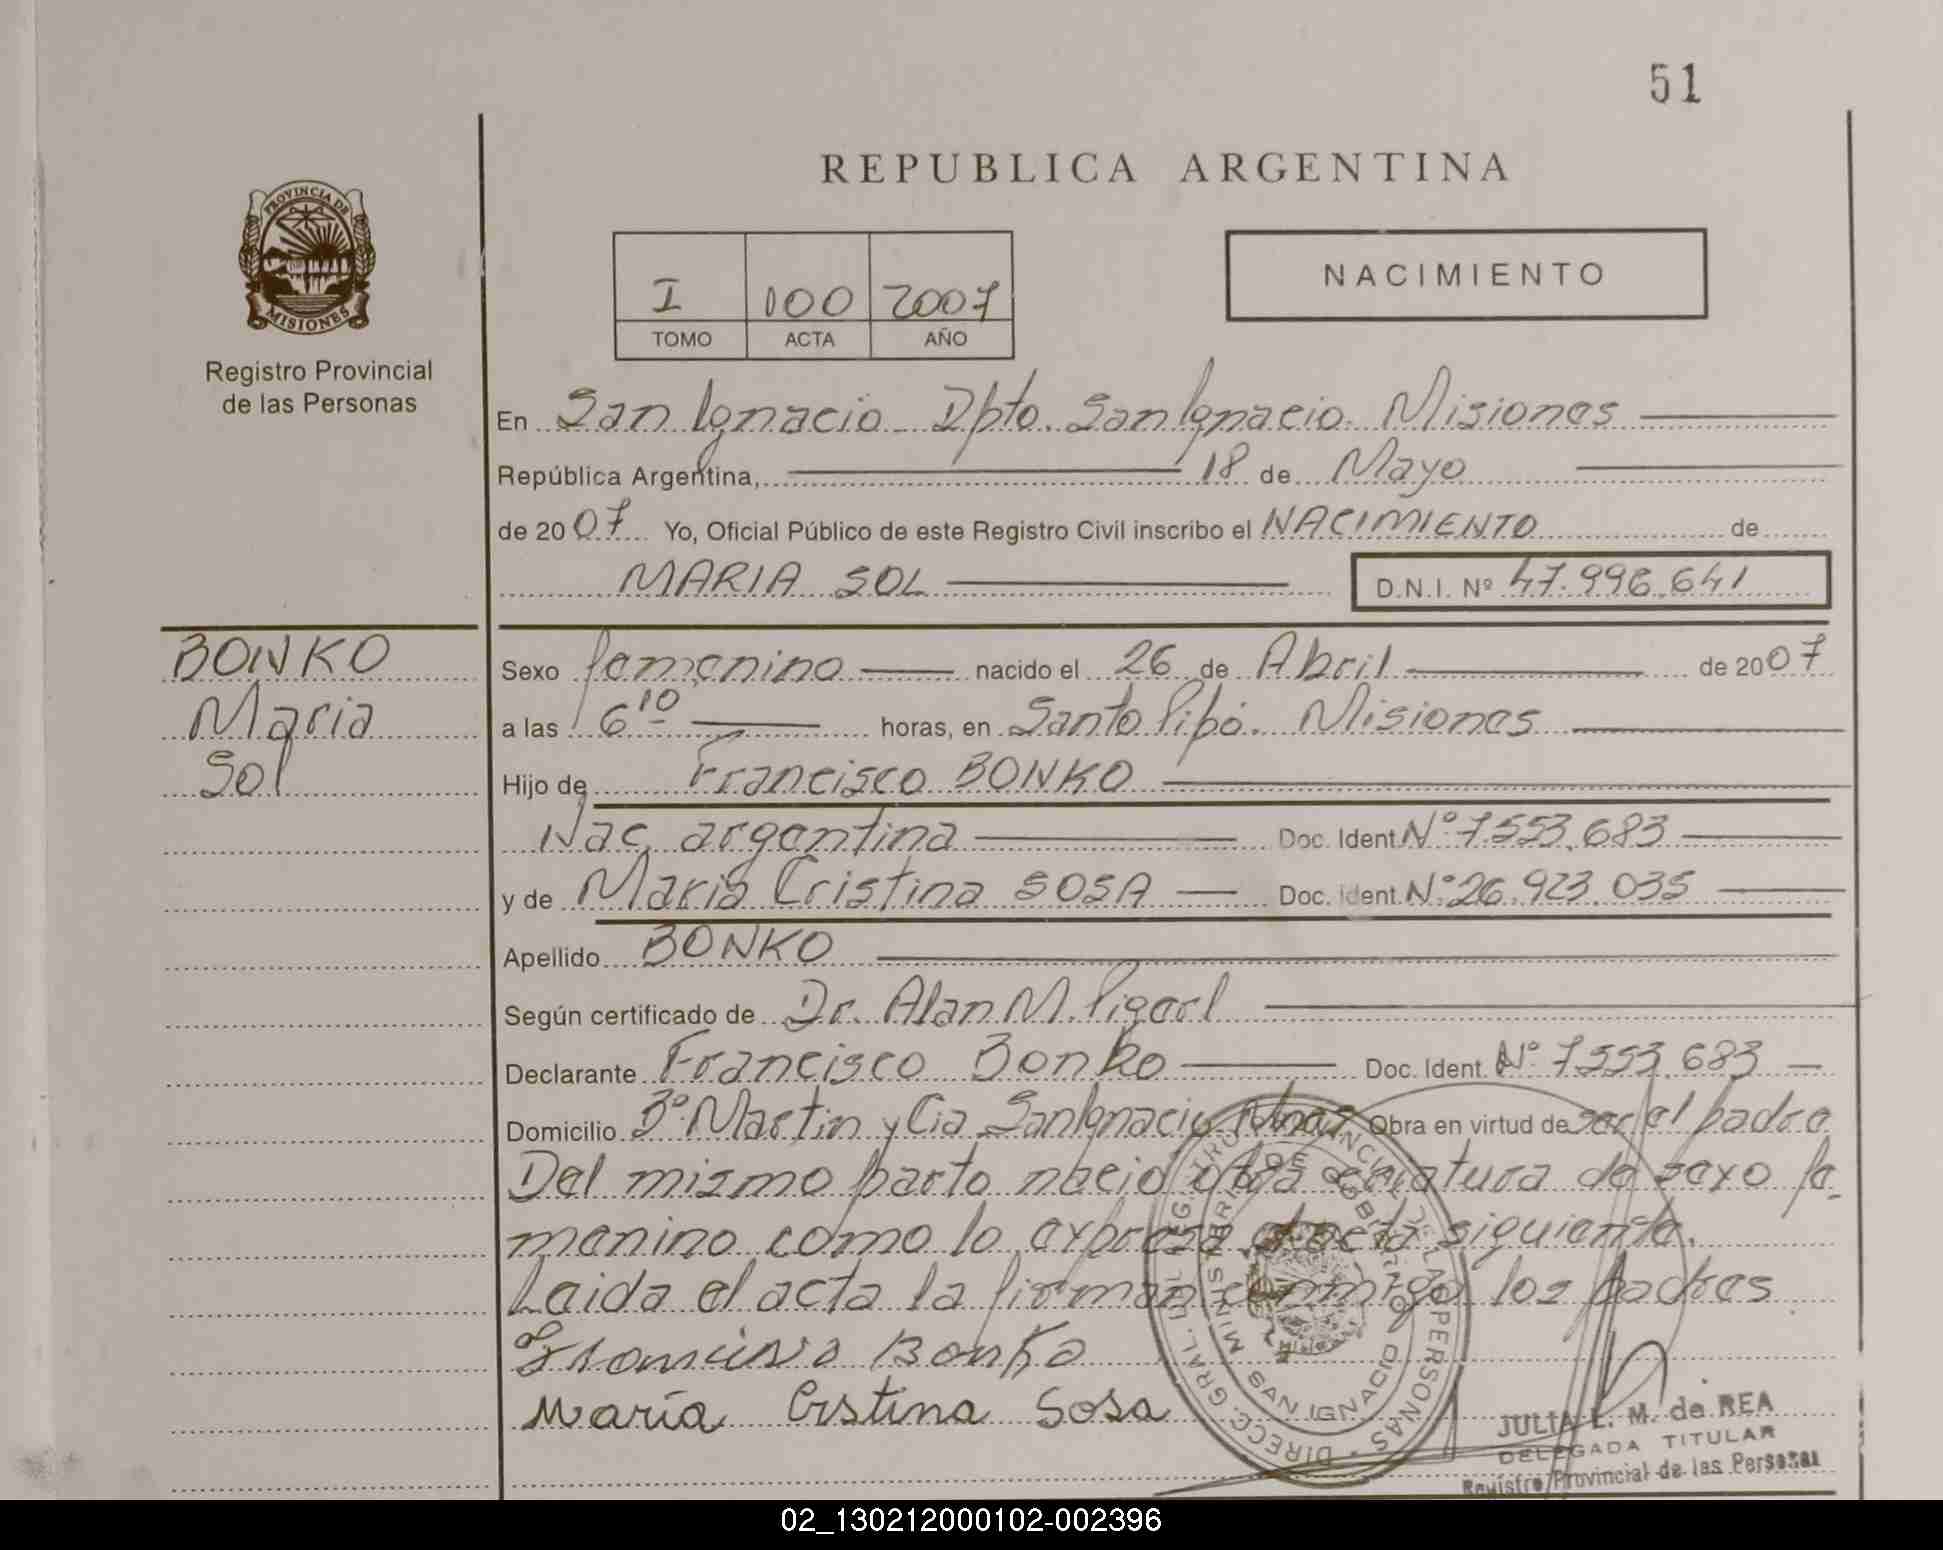 51
REPUBLICA ARGENTINA
PROVINCIA DE
MISIONES
Registro Provincial
de las Personas
I 100 2007
TOMO ACTA AÑO
NACIMIENTO
En San Ignacio Dpto. San Ignacio. Misiones
República Argentina, 18 de Mayo
de 2007 Yo, Oficial Público de este Registro Civil inscribo el NACIMIENTO de
MARIA SOL D.N.I. Nº 47.996.641
BONKO
Maria
Sol
Sexo femenino nacido el 26 de Abril de 2007
a las 6 10 horas, en Santo Pipó. Misiones
Hijo de Francisco BONKO
Nac. argentina Doc. Ident. Nº 7.553.683
y de Maria Cristina SOSA Doc. Ident. Nº 26.923.035
Apellido BONKO
Según certificado de Dr. Alan M.
Declarante Francisco Bonko Doc. Ident. Nº 7.553.683
Domicilio Bº Martin y Cia San Ignacio Mnes Obra en virtud de ser el padre
Del mismo parto nació otra criatura de sexo fe-
menino como lo expresa el acta siguiente.
Leida el acta la firman conmigo los padres
Francisco Bonko
María Cristina Sosa
DIRECC. GRAL. DEL REGISTRO PROVINCIAL DE LAS PERSONAS
MINISTERIO DE GOBIERNO
SAN IGNACIO
JULIA L. M. de REA
DELEGADA TITULAR
Registro Provincial de las Personas
02_130212000102-002396